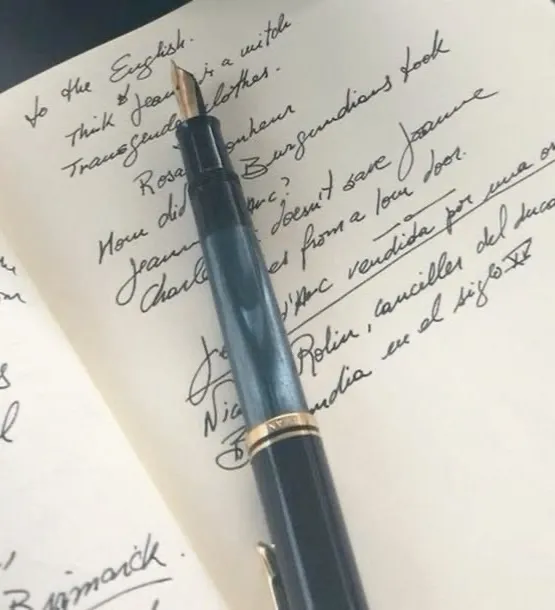 to the English.
Think Jeanne is a witch
Transgender clothes.
Rosa Bonheur
How did Burgundians took
Jeanne Arc?
Charles doesn't save Jeanne
from a low door.
d'Arc vendida por una
Nic Rolin, canciller del duca
B ndia en el siglo XV
Bismarck.